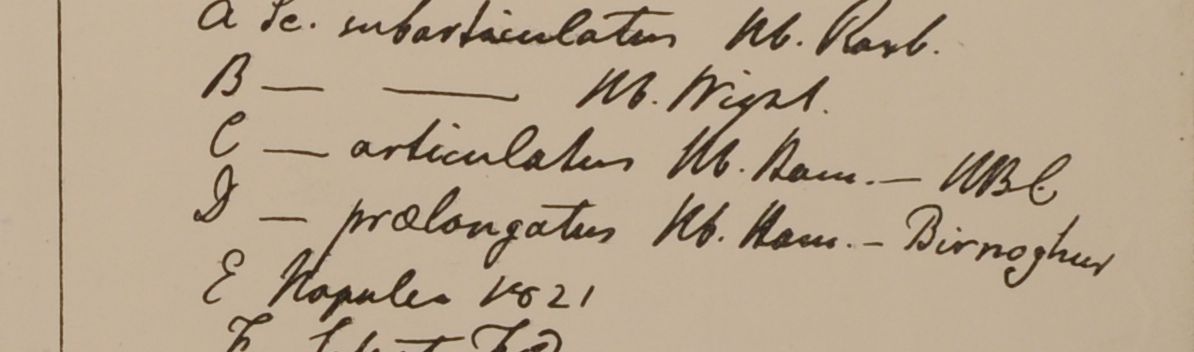 a Sc. subarticulatus Hb. Roxb.
B — — Hb. Wight.
C — articulatus Hb. Ham. — HBC
D — prælongatus Hb. Ham. — Birnoghur
E Napulea 1821
F